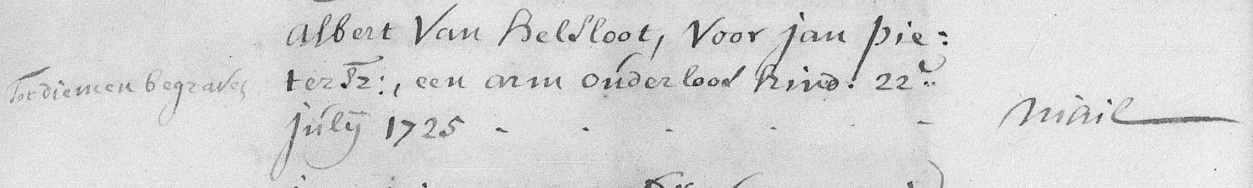 Albert Van Belsloot, Voor jan pie=
Tot diemen begraven
terSz:, een arm onderloos kind. 22.
july 1725 - - - - - -
niail